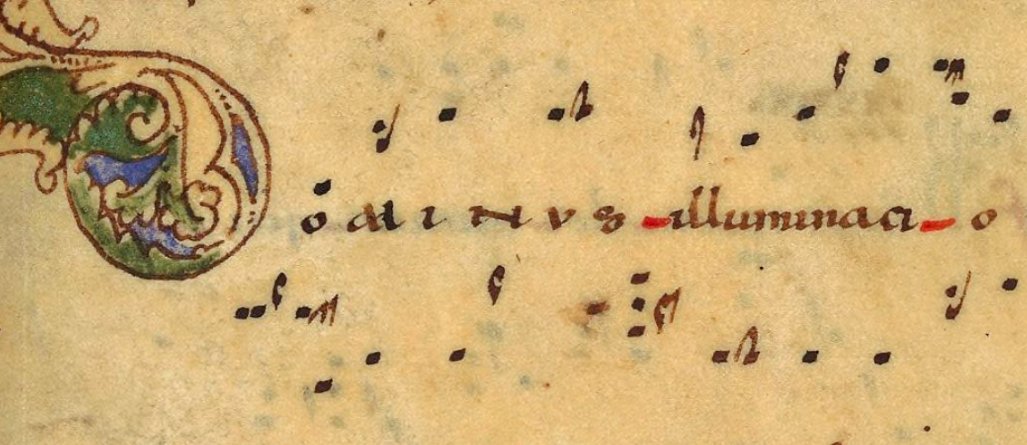 oMINVS illuminacio